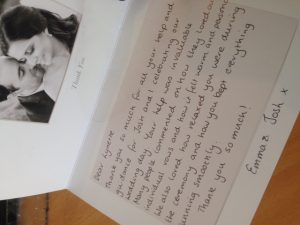 Thank You
Dear Lynette
Thank you so much for all your help and
guidance for Josh and I celebrating our
wedding day. Your help was invaluable
Many people commented on how they loved our
individual vows and how it felt warm and personal
We also loved how relaxed you were during
the ceremony and how you kept everything
running smoothly.
Thank you so much!
Emma & Josh x